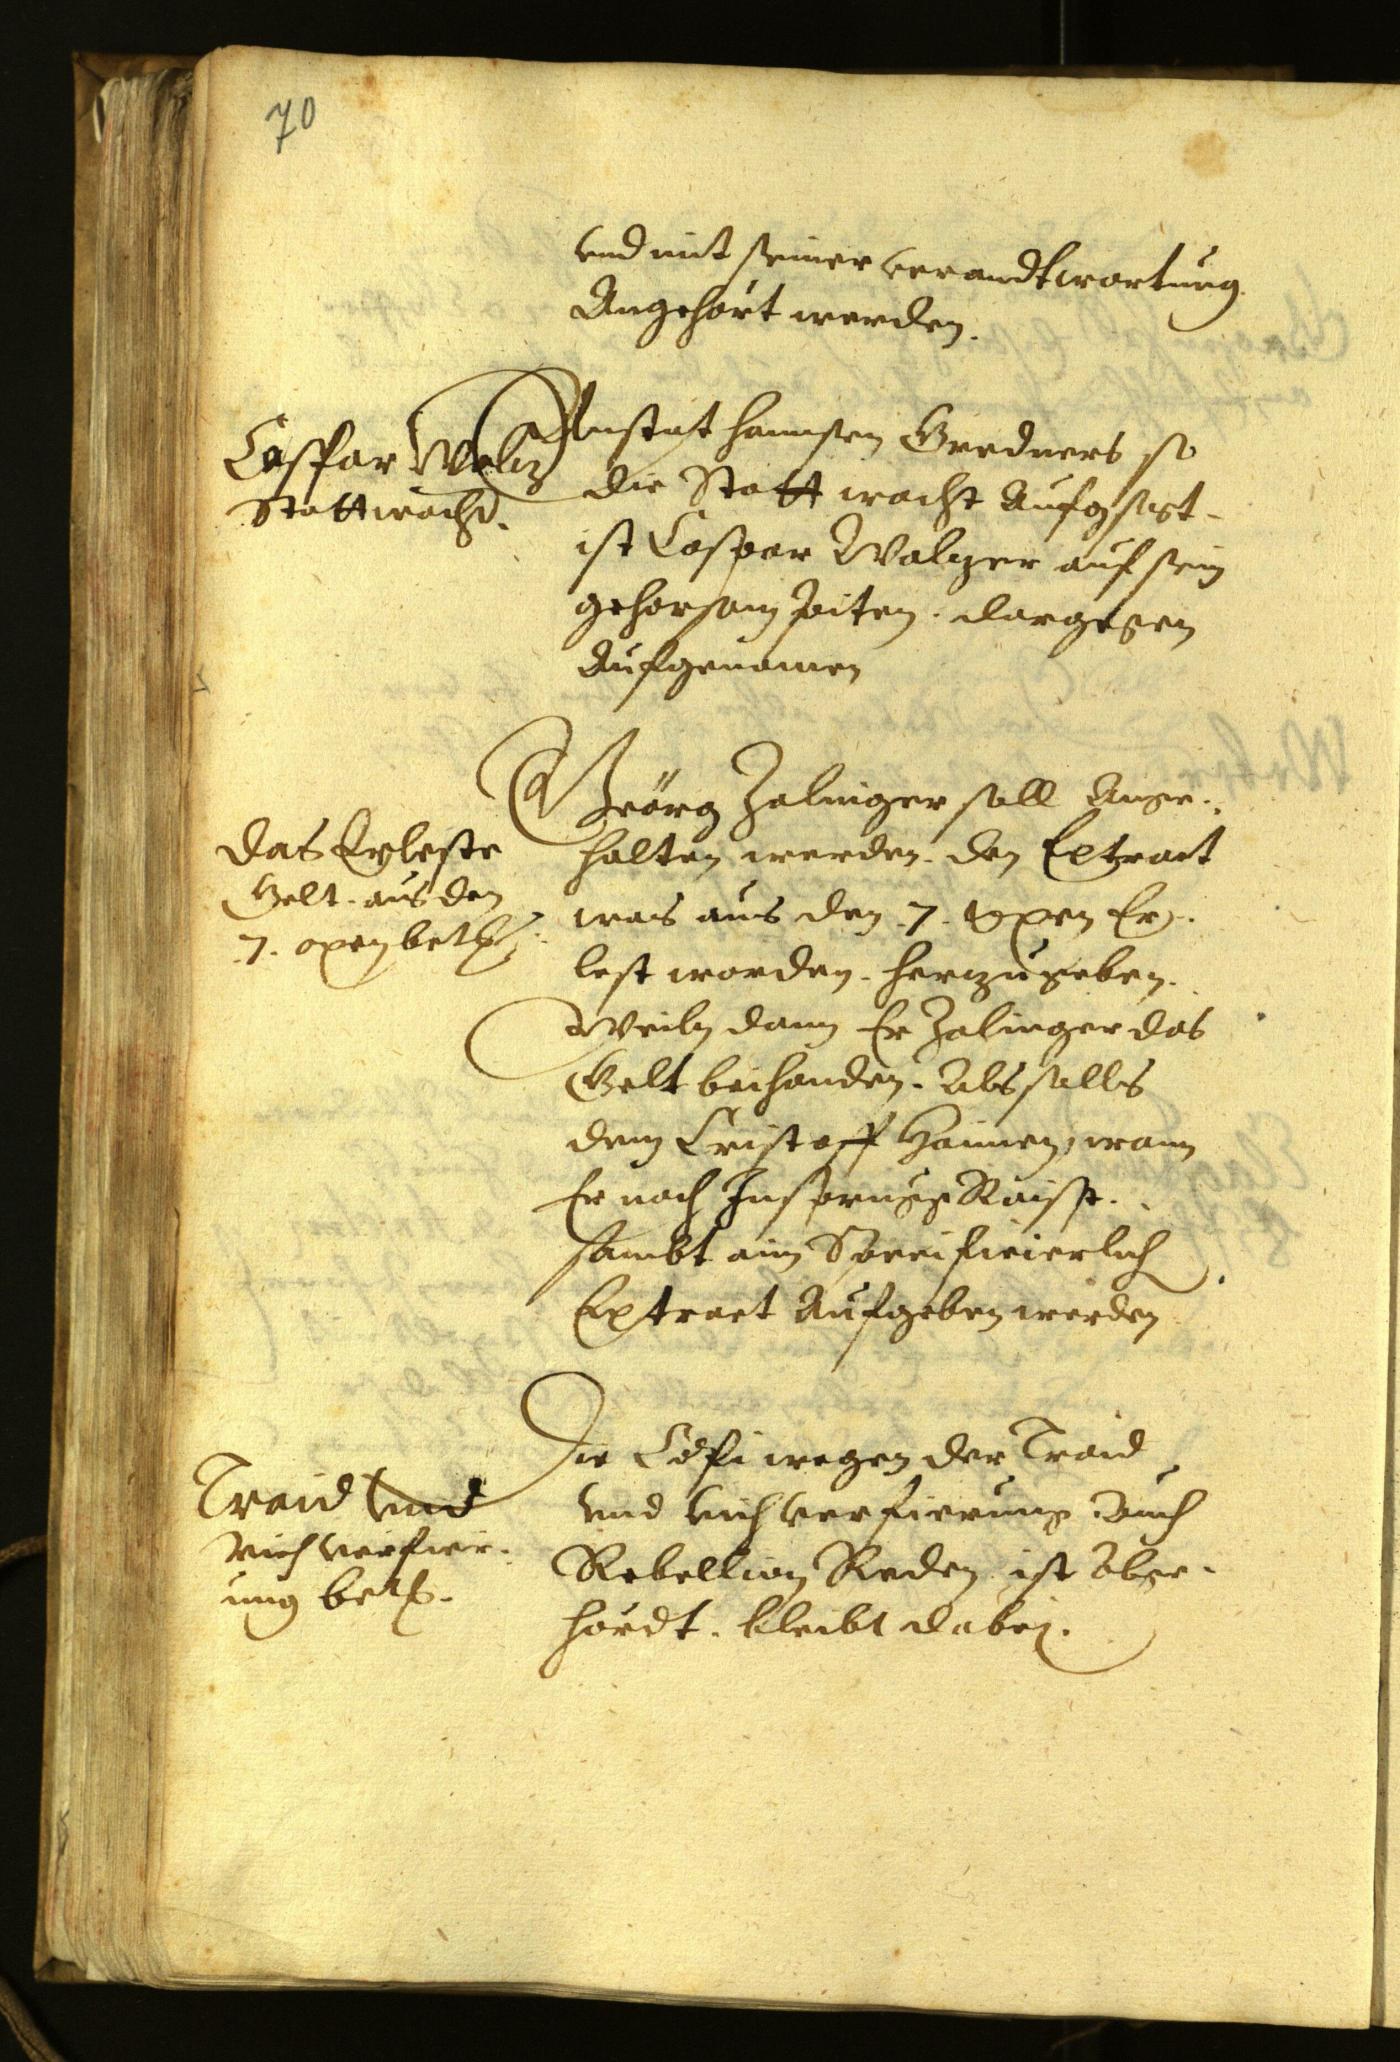 70
vnd mit seiner verandtwortung
Angehört werden.
Caspar Walz
Stattwacht.
Anstat hannsen Gredners so
die Statt wacht Aufgsagt
ist Caspar Walzer auf sein
gehorsam piten. dargegen
Aufgenomen
Das Erleste
Gelt. aus den
7. oxen betr.
Geörg Zalinger soll Ange-
halten werden. den Extract
was aus den .7. oxen Er-
lest worden. herzugeben.
Weiln dann Er Zalinger das
Gelt beihanden. Als solls
dem Cristoff Hainen, wann
Er nach Insprugg Raist.
sambt aim Specificierlich
Extract Aufgeben werden
Traid vnd
Vich verfier-
ung betr.
Die wegen der Traid
vnd vich verfierung. Auch
Rebellion Reden ist Abge-
hördt. bleibt dabei.